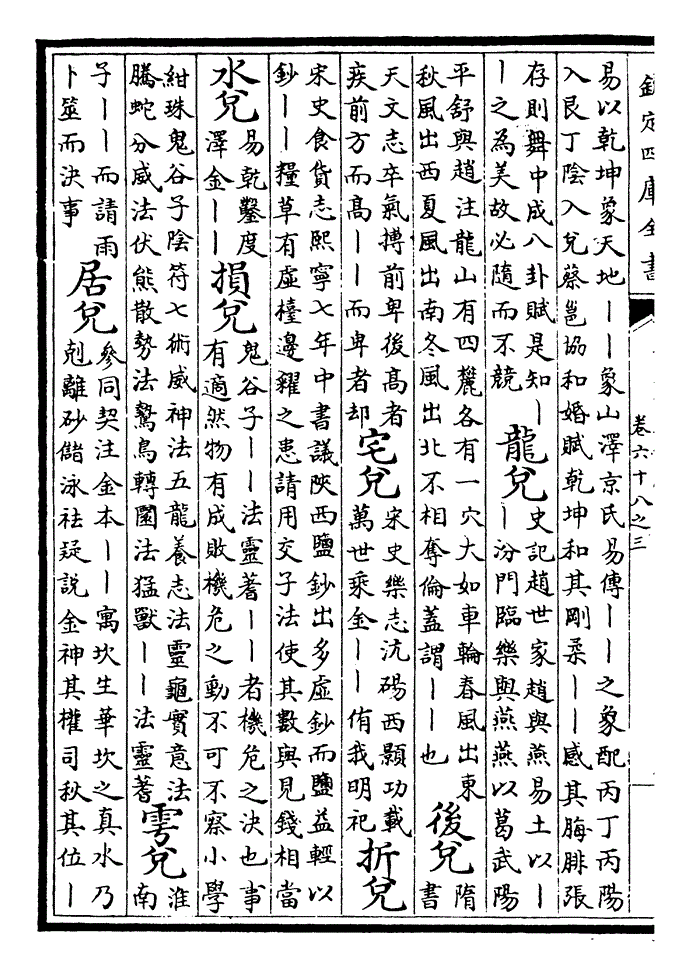 欽定四庫全書
卷六十八之三
易以乾坤象天地丨丨象山澤京氏易傳丨丨之象配丙丁丙陽
入艮丁陰入兌蔡邕協和婚賦乾坤和其剛柔丨丨感其脢腓張
存則舞中成八卦賦是知丨
丨之為美故必隨而不競
龍兌
史記趙世家趙與燕易土以丨
丨汾門臨樂與燕燕以葛武陽
平舒與趙注龍山有四麓各有一穴大如車輪春風出東
秋風出西夏風出南冬風出北不相奪倫蓋謂丨丨也
後兌
隋
書
天文志卒氣搏前卑後高者
疾前方而高丨丨而卑者却
宅兌
宋史樂志沆碭西顥功載
萬世乘金丨丨侑我明祀
折兌
宋史食貨志熙寧七年中書議陝西鹽鈔出多虛鈔而鹽益輕以
鈔丨丨糧草有虛檯邊糴之患請用交子法使其數與見錢相當
水兌
易乾鑿度
澤金丨丨
損兌
鬼谷子丨丨法靈蓍丨丨者機危之決也事
有適然物有成敗機危之動不可不察小學
紺珠鬼谷子陰符七術威神法五龍養志法靈龜實意法
騰蛇分威法伏熊散勢法鷙鳥轉圜法猛獸丨丨法靈蓍
雩兌
淮
南
子丨丨而請雨
卜筮而決事
居兌
參同契注金本丨丨寓坎生華坎之真水乃
剋離砂儲泳祛疑説金神其權司秋其位丨